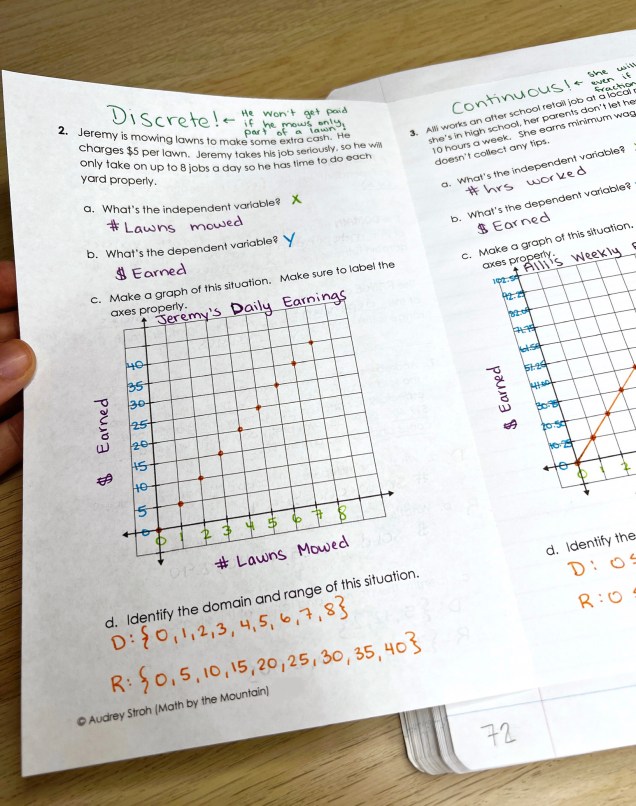 Discrete! ← He won't get paid
if he mows only
part of a lawn!
2. Jeremy is mowing lawns to make some extra cash. He
charges $5 per lawn. Jeremy takes his job seriously, so he will
only take on up to 8 jobs a day so he has time to do each
yard properly.
a. What's the independent variable? X
# Lawns mowed
b. What's the dependent variable? Y
$ Earned
c. Make a graph of this situation. Make sure to label the
axes properly.
Jeremy's Daily Earnings
40
35
30
25
20
15
10
5
0
$ Earned
0 1 2 3 4 5 6 7 8
# Lawns Mowed
d. Identify the domain and range of this situation.
D: {0, 1, 2, 3, 4, 5, 6, 7, 8}
R: {0, 5, 10, 15, 20, 25, 30, 35, 40}
© Audrey Stroh (Math by the Mountain)
Continuous! ← she will
even if
fraction
3. Alli works an after school retail job at a local
she's in high school, her parents don't let he
10 hours a week. She earns minimum wag
doesn't collect any tips.
a. What's the independent variable?
# hrs worked
b. What's the dependent variable?
$ Earned
c. Make a graph of this situation.
axes properly.
Alli's Weekly
102.50
92.25
82.00
71.75
61.50
51.25
41.00
30.75
20.50
10.25
0
$ Earned
0 1 2
d. Identify the
D: 0 ≤
R: 0
72